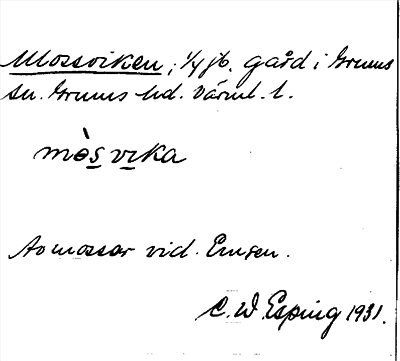 Mossviken, ¼ jb. gård i Grums
sn. Grums hd. Värml. l.
mòs vika
Av mossar vid
C. W. Esping 1931.